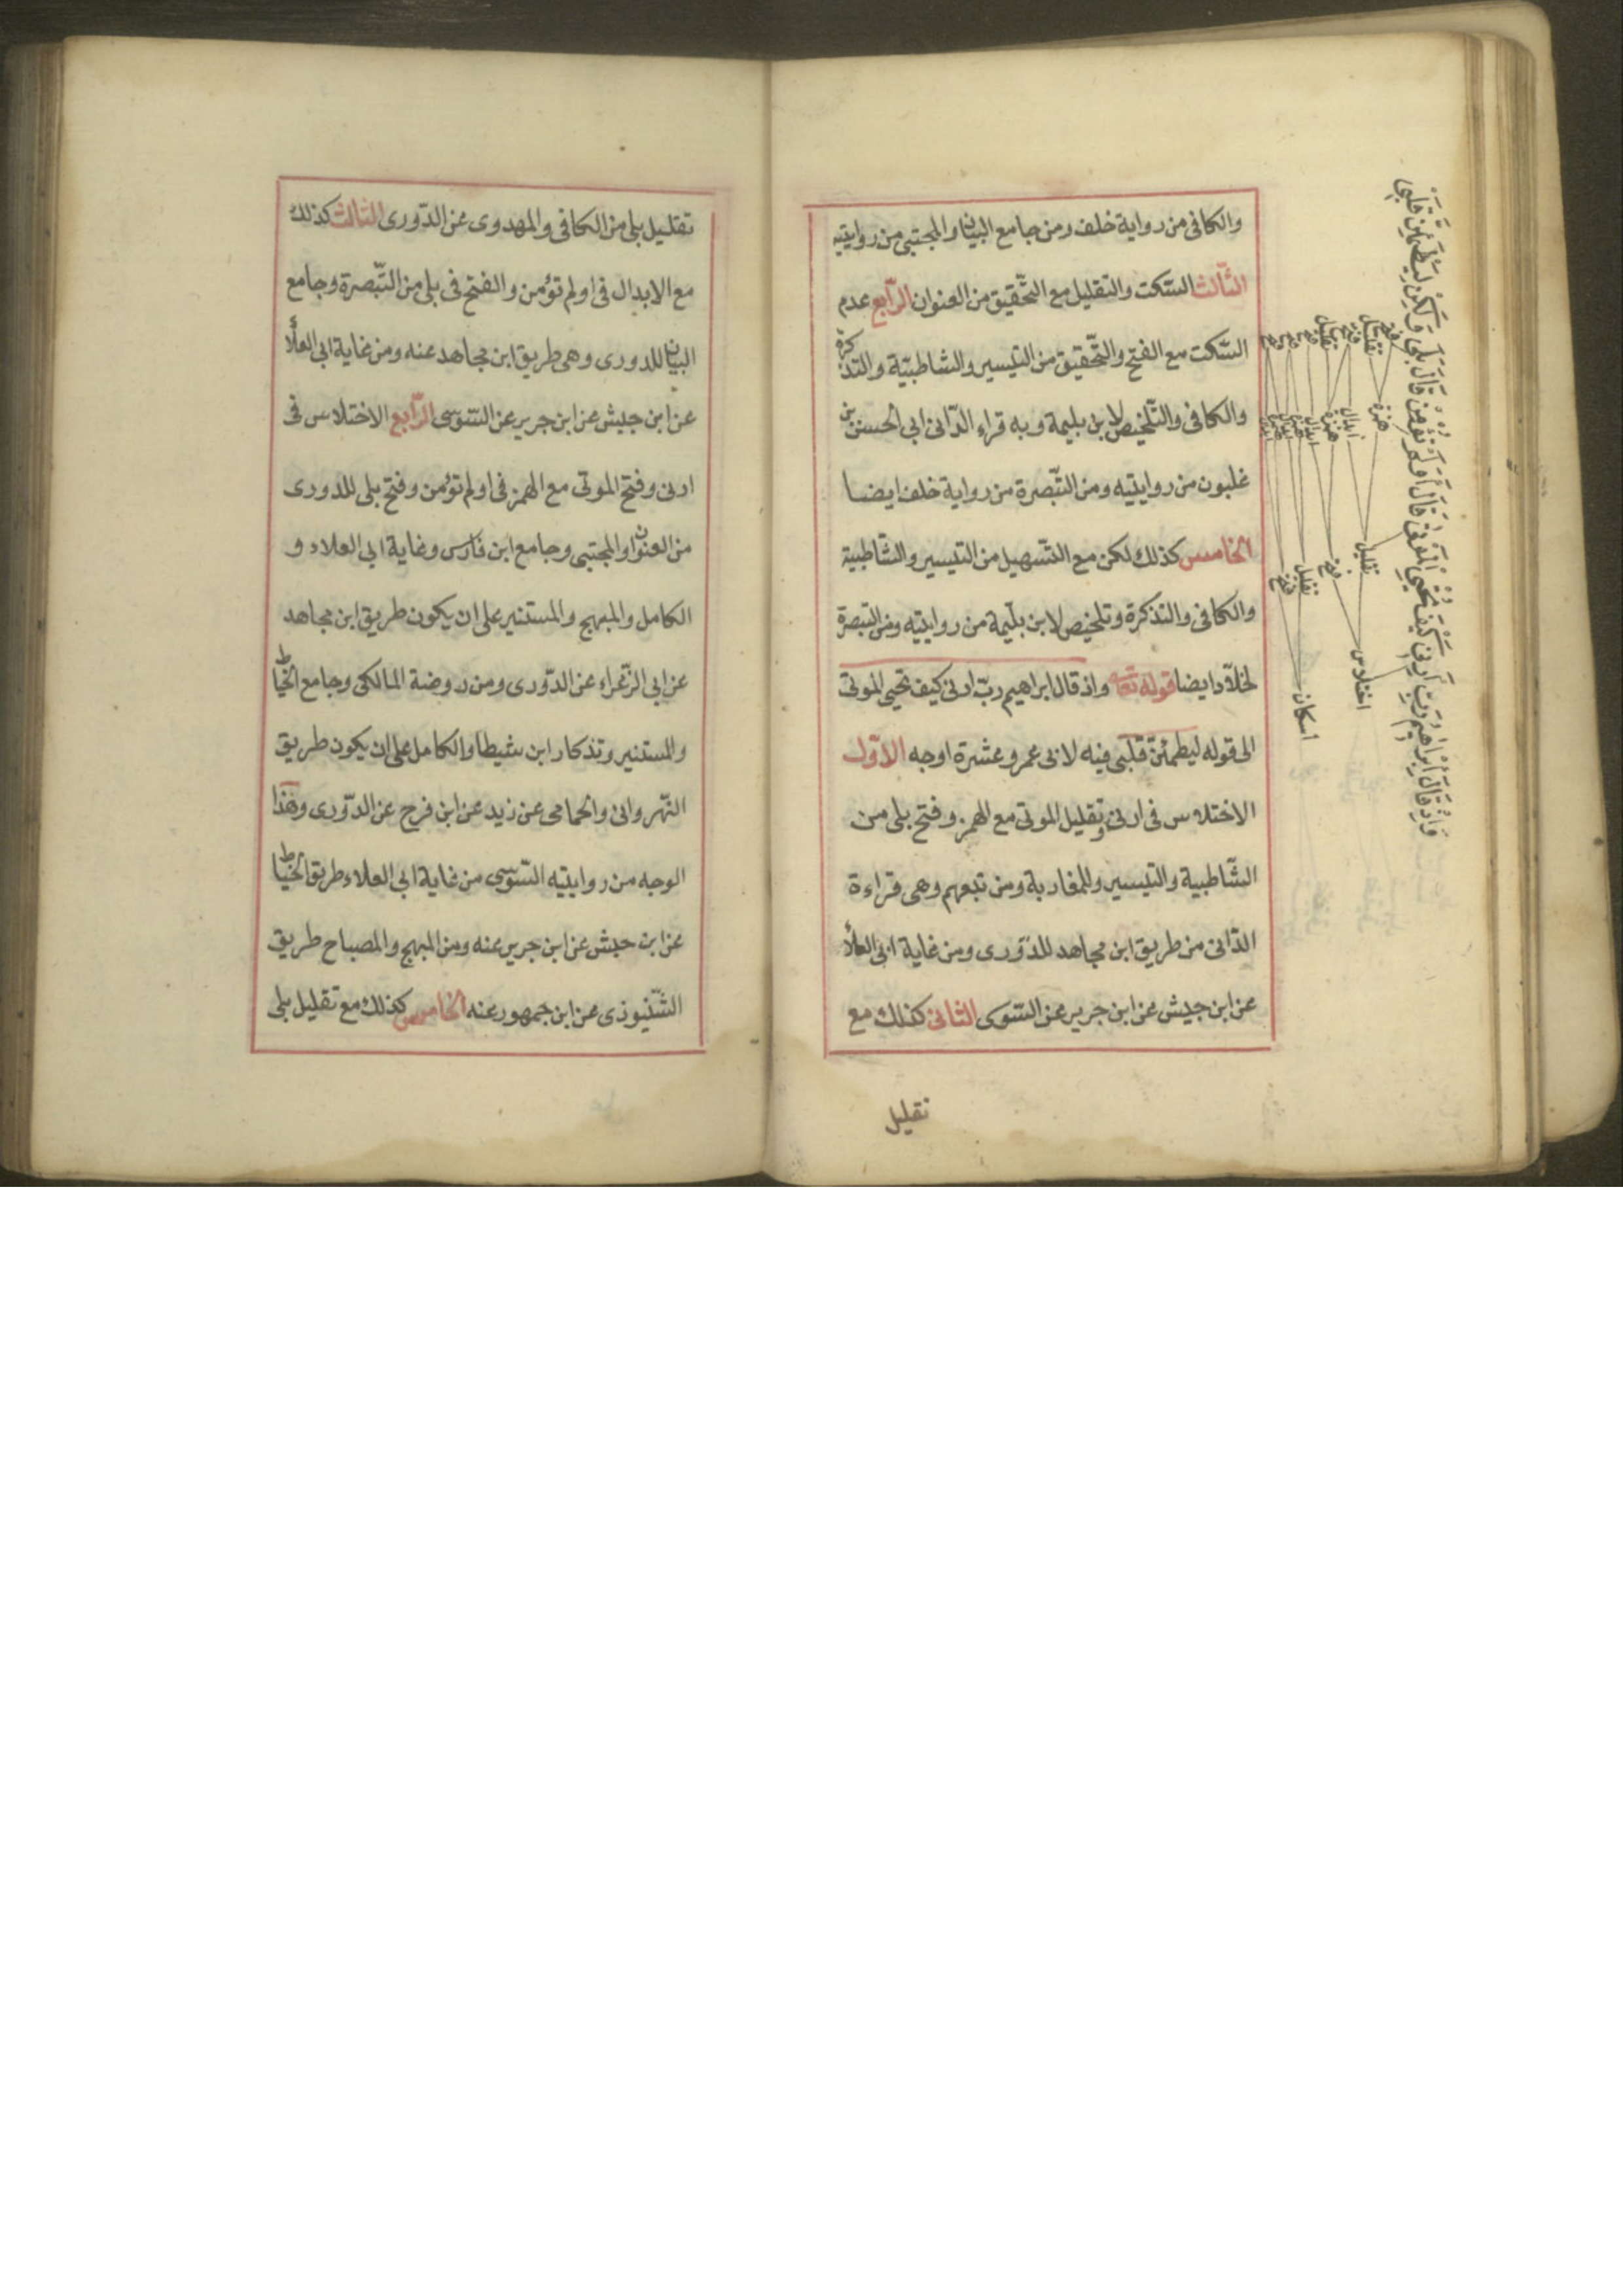 والكافى من رواية خلف ومن جامع البيان والمجتبى من روايتيه
الثّالث السّكت والتقليل مع التّحقيق من العنوان الرّابع عدم
السّكت مع الفتح والتّحقيق من التيسير والشاطبيّة والتذكرة
والكافى والتّلخيص لابن بليمة وبه قراء الدّانى ابى الحسن بن
غلبون من روايتيه ومن التّبصرة من رواية خلف ايضا
الخامس كذلك لكن مع التّسهيل من التيسير والشّاطبية
والكافى والتذكرة وتلخيص لابن بلّيمة من روايتيه ومن التبصرة
لخلّاد ايضا قوله تعالى واذ قال ابراهيم ربّ ارنى كيف تحيى الموتى
الى قوله ليطمئنّ قلبى فيه لابى عمرو عشرة اوجه الاوّل
الاختلاس فى ارنى وتقليل الموتى مع الهمز وفتح بلى من
الشّاطبية والتيسير وللمغاربة ومن تبعهم وهى قراءة
الدّانى من طريق ابن مجاهد للدّورى ومن غاية ابى العلاء
عن ابن حبش عن ابن جرير عن السّوسى الثّانى كذلك مع
تقليل
وَاِذْ قَالَ اِبْرٰاهِيْمُ رَبِّ اَرِنِى كَيْفَ تُحْيِى الْمَوْتٰى قَالَ اَوَلَمْ تُؤْمِنْ قَالَ بَلٰى وَلٰكِنْ لِيَطْمَئِنَّ قَلْبِى
اختلاس
اسكان
تقليل
فتح
تقليل
فتح
همزة
ابدال
همزة
ابدال
فتح
تقليل
فتح
تقليل
تقليل بلى من الكافى والمهدوى عن الدّورى الثالث كذلك
مع الابدال فى اولم تؤمن والفتح فى بلى من التّبصرة وجامع
البيان للدورى وهى طريق ابن مجاهد عنه ومن غاية ابى العلاء
عن ابن حبش عن ابن جرير عن السّوسى الرّابع الاختلاس فى
ارنى وفتح الموتى مع الهمز فى اولم تؤمن وفتح بلى للدورى
من العنوان والمجتبى وجامع ابن فارس وغاية ابى العلاء و
الكامل والمبهج والمستنير على ان يكون طريق ابن مجاهد
عن ابى الزّعراء عن الدّورى ومن روضة المالكى وجامع الخيّاط
والمستنير وتذكار ابن شيطا والكامل على ان يكون طريق
النّهروانى والحمامى عن زيد عن ابن فرح عن الدّورى وهذا
الوجه من روايتيه السّوسى من غاية ابى العلاء طريق الخيّاط
عن ابن حبش عن ابن جرير عنه ومن المبهج والمصباح طريق
الشّنبوذى عن ابن جمهور عنه الخامس كذلك مع تقليل بلى